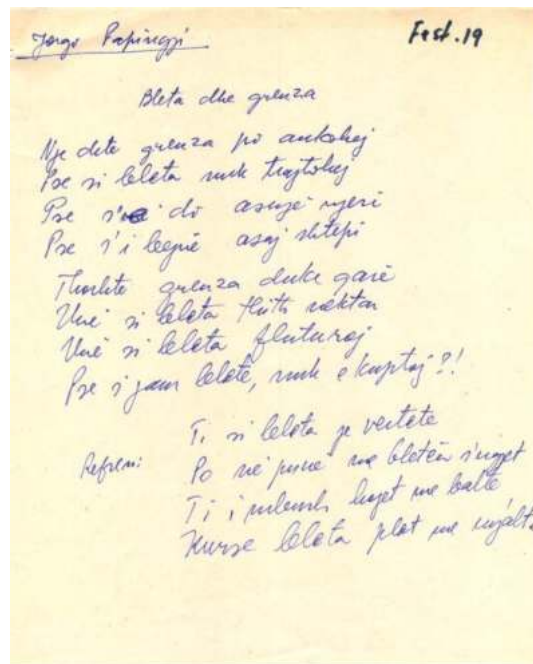 Jorgo Papingji
Fest.19
Bleta dhe grenza
Nje dite grenza po ankohej
Pse si bleta nuk trajtohej
Pse s'e do asnjë njeri
Pse s'i bëjnë asaj shtëpi
Thoshte grenza duke qarë
Unë si bleta thith nektar
Unë si bleta fluturoj
Pse s'jam bletë, nuk e kuptoj?!
Refreni:
Ti si bleta je vertete
Po në punë me bletën s'ngjet
Ti i mbush hojet me baltë
Kurse bleta plot me mjaltë